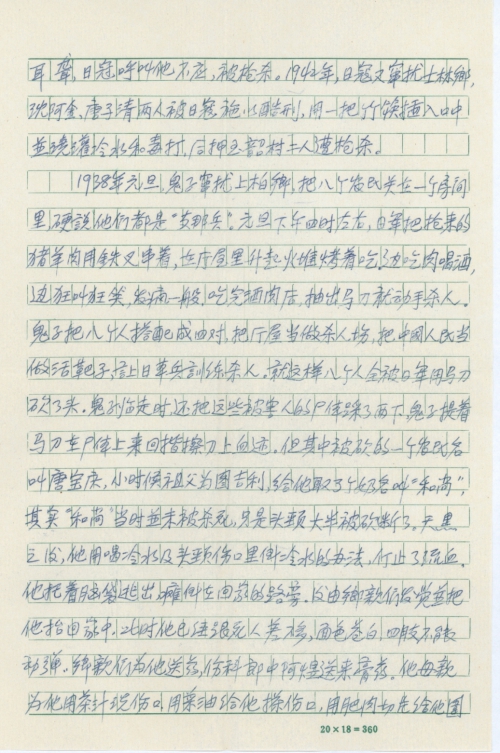 耳聋,日寇呼叫他不应,被枪杀。1942年,日寇又窜扰士林乡,
沈阿金、唐子清两人被日寇施以酷刑,用一把竹筷插入口中
并浇灌冷水和毒打,后押至韶村二人遭枪杀。
1938年元旦,鬼子窜扰上柏乡,把八个农民关在一个房间
里,硬说他们都是“支那兵”。元旦下午四时左右,日军把抢来的
猪羊肉用铁叉串着,在厅屋里升起火堆烤着吃,边吃肉喝酒,
边狂叫狂笑,发疯一般。吃完酒肉后,抽出马刀就动手杀人。
鬼子把八个人搭配成四对,把厅屋当做杀人场,把中国人民当
做活靶子,让日军兵训练杀人。就这样八个人全被日军用马刀
砍了头。鬼子临走时还把这些被害人的尸体踩了两下,鬼子提着
马刀在尸体上来回揩擦刀上血迹。但其中被砍的一个农民名
叫唐宝庆,小时候祖父为图吉利,给他取了个好名叫“和尚”,
其实“和尚”当时并未被杀死,只是头颈大半被砍断了。天黑
之后,他用喝冷水及头颈伤口里倒冷水的办法,作止了流血。
他托着脑袋逃出,瘫倒在回家的路旁。后由乡亲们发觉并把
他抬回家中。此时他已经跟死人差不多,面色苍白,四肢不能
动弹。乡亲们为他送药,伤科郎中阿煜送来膏药。他母亲
为他用茶汁洗伤口,用菜油给他搽伤口,用肥肉切片给他围
20×18=360